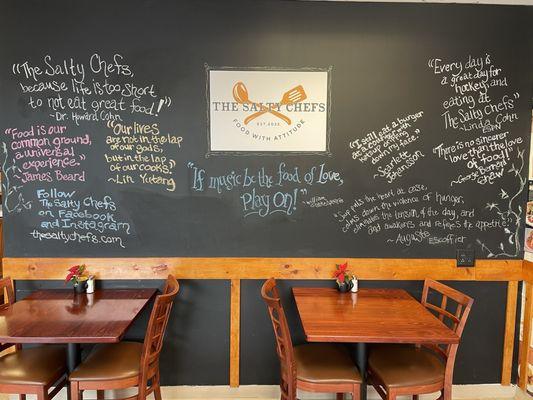 "The Salty Chefs,
because life is too short
to not eat great food!"
~ Dr. Howard Cohn
"Food is our
common ground,
a universal
experience."
~ James Beard
"Our lives
are not in the lap
of our gods,
but in the lap
of our cooks."
~ Lin Yutang
Follow
The Salty Chefs
on Facebook
and Instagram
thesaltychefs.com
THE SALTY CHEFS
EST. 2022
FOOD WITH ATTITUDE
"If music be the food of love,
Play on!"
~ William
"I will eat a burger
dripping
down my face."
~ Scarlett
Johansson
"Every day is
a great day for
hockey and
eating at The
Salty Chefs"
~ Linda Cohn
ESPN
"There is no sincerer
love than the love
of food!"
~ George Bernard
Shaw
"Soup puts the heart at ease,
calms down the violence of hunger,
eliminates the tension of the day, and
awakens and refines the appetite."
~ Auguste Escoffier